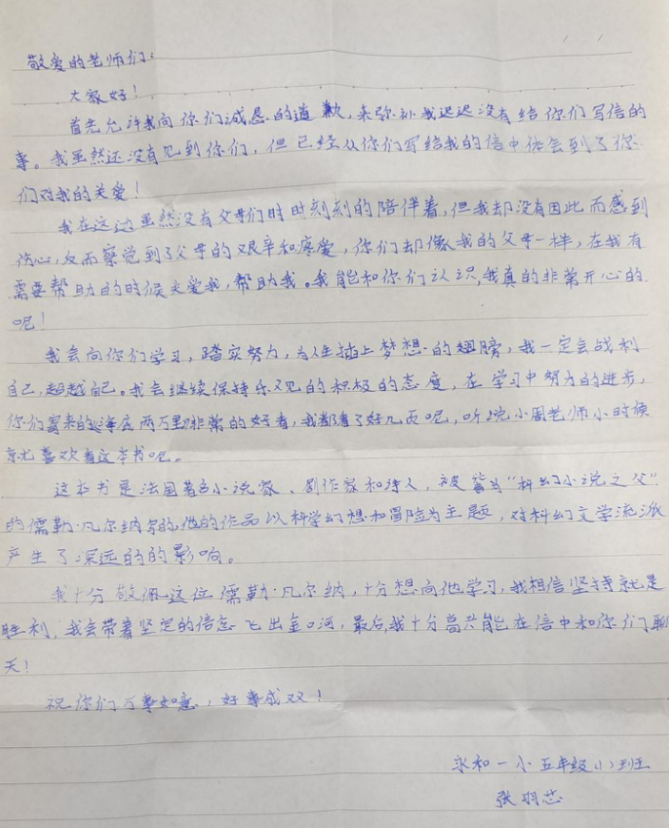 敬爱的老师们：
大家好！
首先允许我向你们诚恳的道歉，来弥补我迟迟没有给你们写信的
事。我虽然还没有见到你们，但已经从你们写给我的信中体会到了你
们对我的关爱！
我在这边虽然没有父母们时时刻刻的陪伴着，但我却没有因此而感到
伤心，反而察觉到了父母的艰辛和疼爱，你们却像我的父母一样，在我有
需要帮助的时候关爱我，帮助我。我能和你们认识，我真的非常开心的
呢！
我会向你们学习，踏实努力，为人生插上梦想的翅膀，我一定会战利
自己，超越自己。我会继续保持乐观的积极的态度，在学习中努力的进步，
你们寄来的海底两万里非常的好看，我都看了好几页呢，听说小周老师小时候
就喜欢看这本书呢。
这本书是法国著名小说家、剧作家和诗人，被誉为“科幻小说之父”
的儒勒·凡尔纳尔的，他的作品以科学幻想和冒险为主题，对科幻文学流派
产生了深远的的影响。
我十分敬佩这位儒勒·凡尔纳，十分想向他学习，我相信坚持就是
胜利，我会带着坚定的信念飞出金口河，最后，我十分高兴能在信中和你们聊
天！
祝你们万事如意，好事成双！
永和一小五年级(1)班
张羽芯